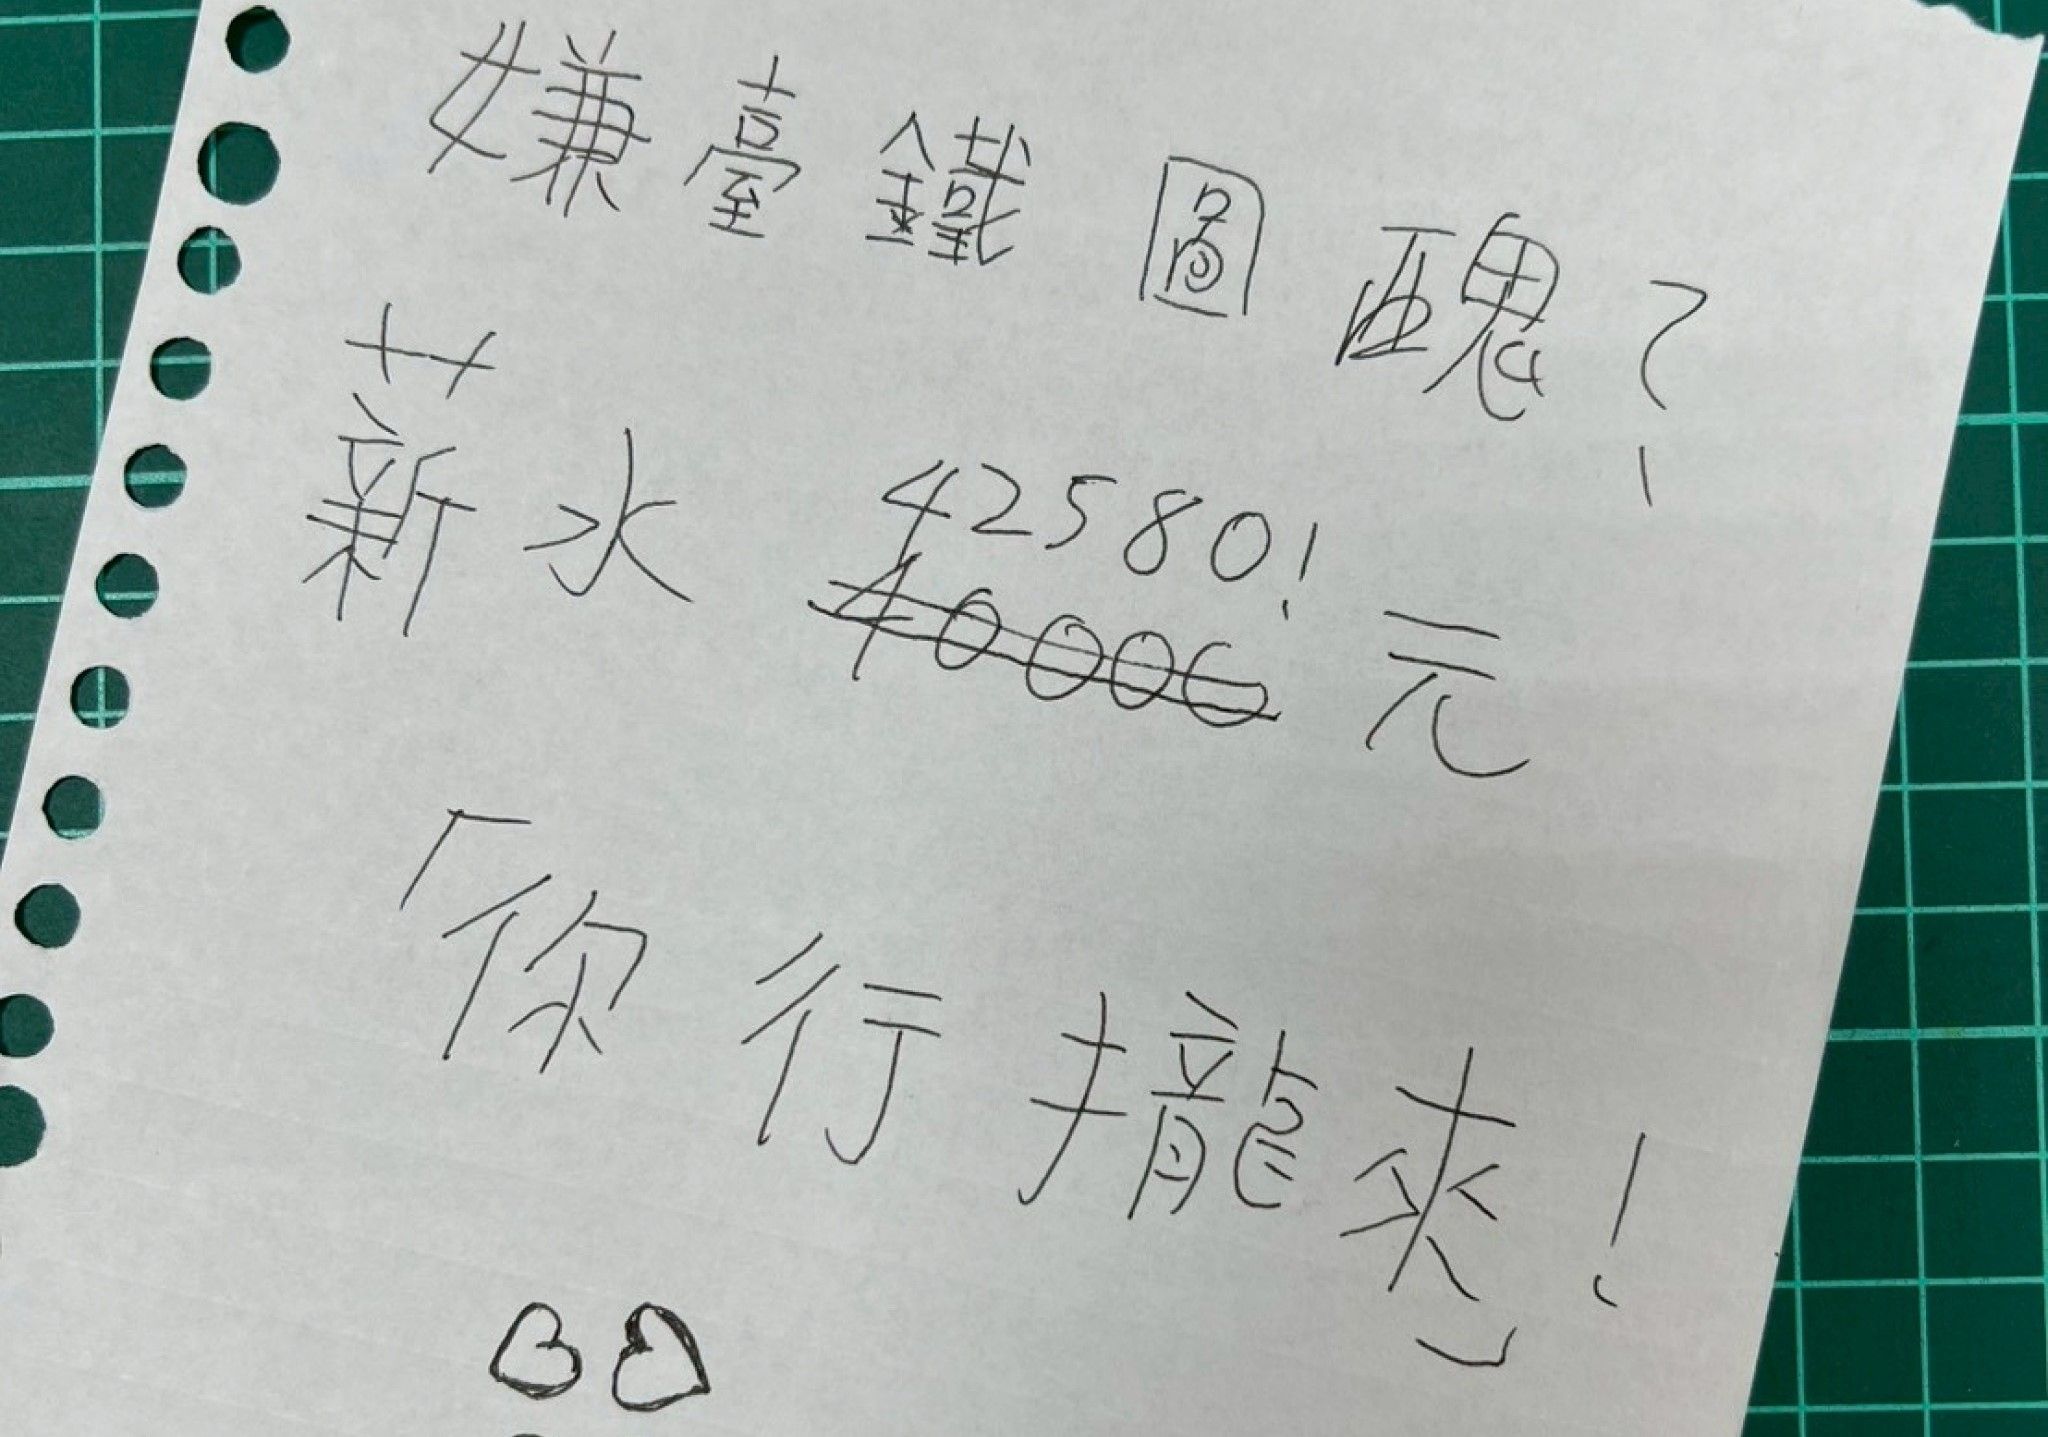 嫌臺鐵圖醜?
薪水 42580!
40000 元
「你行攏來!」